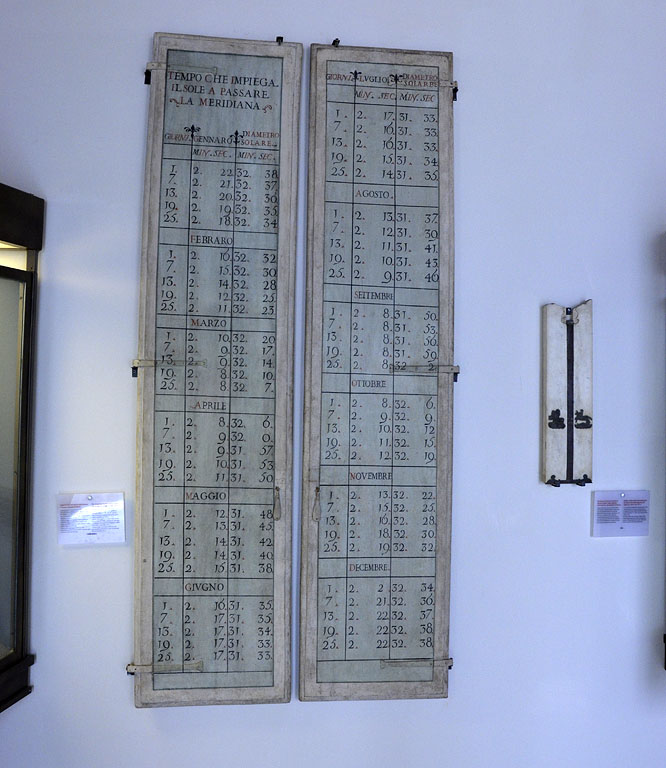 TEMPO CHE IMPIEGA
IL SOLE A PASSARE
LA MERIDIANA
GIORNI GENNARO DIAMETRO SOLARE
MIN. SEC. MIN. SEC.
1. 2. 22. 32. 38.
7. 2. 21. 32. 37.
13. 2. 20. 32. 36.
19. 2. 19. 32. 35.
25. 2. 18. 32. 34.
FEBRARO
1. 2. 16. 32. 32.
7. 2. 15. 32. 30.
13. 2. 14. 32. 28.
19. 2. 12. 32. 25.
25. 2. 11. 32. 23.
MARZO
1. 2. 10. 32. 20.
7. 2. 9. 32. 17.
13. 2. 9. 32. 14.
19. 2. 8. 32. 10.
25. 2. 8. 32. 7.
APRILE
1. 2. 8. 32. 6.
7. 2. 9. 32. 0.
13. 2. 9. 31. 57.
19. 2. 10. 31. 53.
25. 2. 11. 31. 50.
MAGGIO
1. 2. 12. 31. 48.
7. 2. 13. 31. 45.
13. 2. 14. 31. 42.
19. 2. 14. 31. 40.
25. 2. 15. 31. 38.
GIVGNO
1. 2. 16. 31. 35.
7. 2. 17. 31. 35.
13. 2. 17. 31. 34.
19. 2. 17. 31. 33.
25. 2. 17. 31. 33.
GIORNI LVGLIO DIAMETRO SOLARE
MIN. SEC. MIN. SEC.
1. 2. 17. 31. 33.
7. 2. 16. 31. 33.
13. 2. 16. 31. 33.
19. 2. 15. 31. 34.
25. 2. 14. 31. 35.
AGOSTO
1. 2. 13. 31. 37.
7. 2. 12. 31. 39.
13. 2. 11. 31. 41.
19. 2. 10. 31. 43.
25. 2. 9. 31. 46.
SETTEMBRE
1. 2. 8. 31. 50.
7. 2. 8. 31. 53.
13. 2. 8. 31. 56.
19. 2. 8. 31. 59.
25. 2. 8. 32. 2.
OTTOBRE
1. 2. 8. 32. 6.
7. 2. 9. 32. 9.
13. 2. 10. 32. 12.
19. 2. 11. 32. 15.
25. 2. 12. 32. 19.
NOVEMBRE
1. 2. 13. 32. 22.
7. 2. 15. 32. 25.
13. 2. 16. 32. 28.
19. 2. 18. 32. 30.
25. 2. 19. 32. 32.
DECEMBRE
1. 2. 2 32. 34.
7. 2. 21. 32. 36.
13. 2. 22. 32. 37.
19. 2. 22. 32. 38.
25. 2. 22. 32. 38.